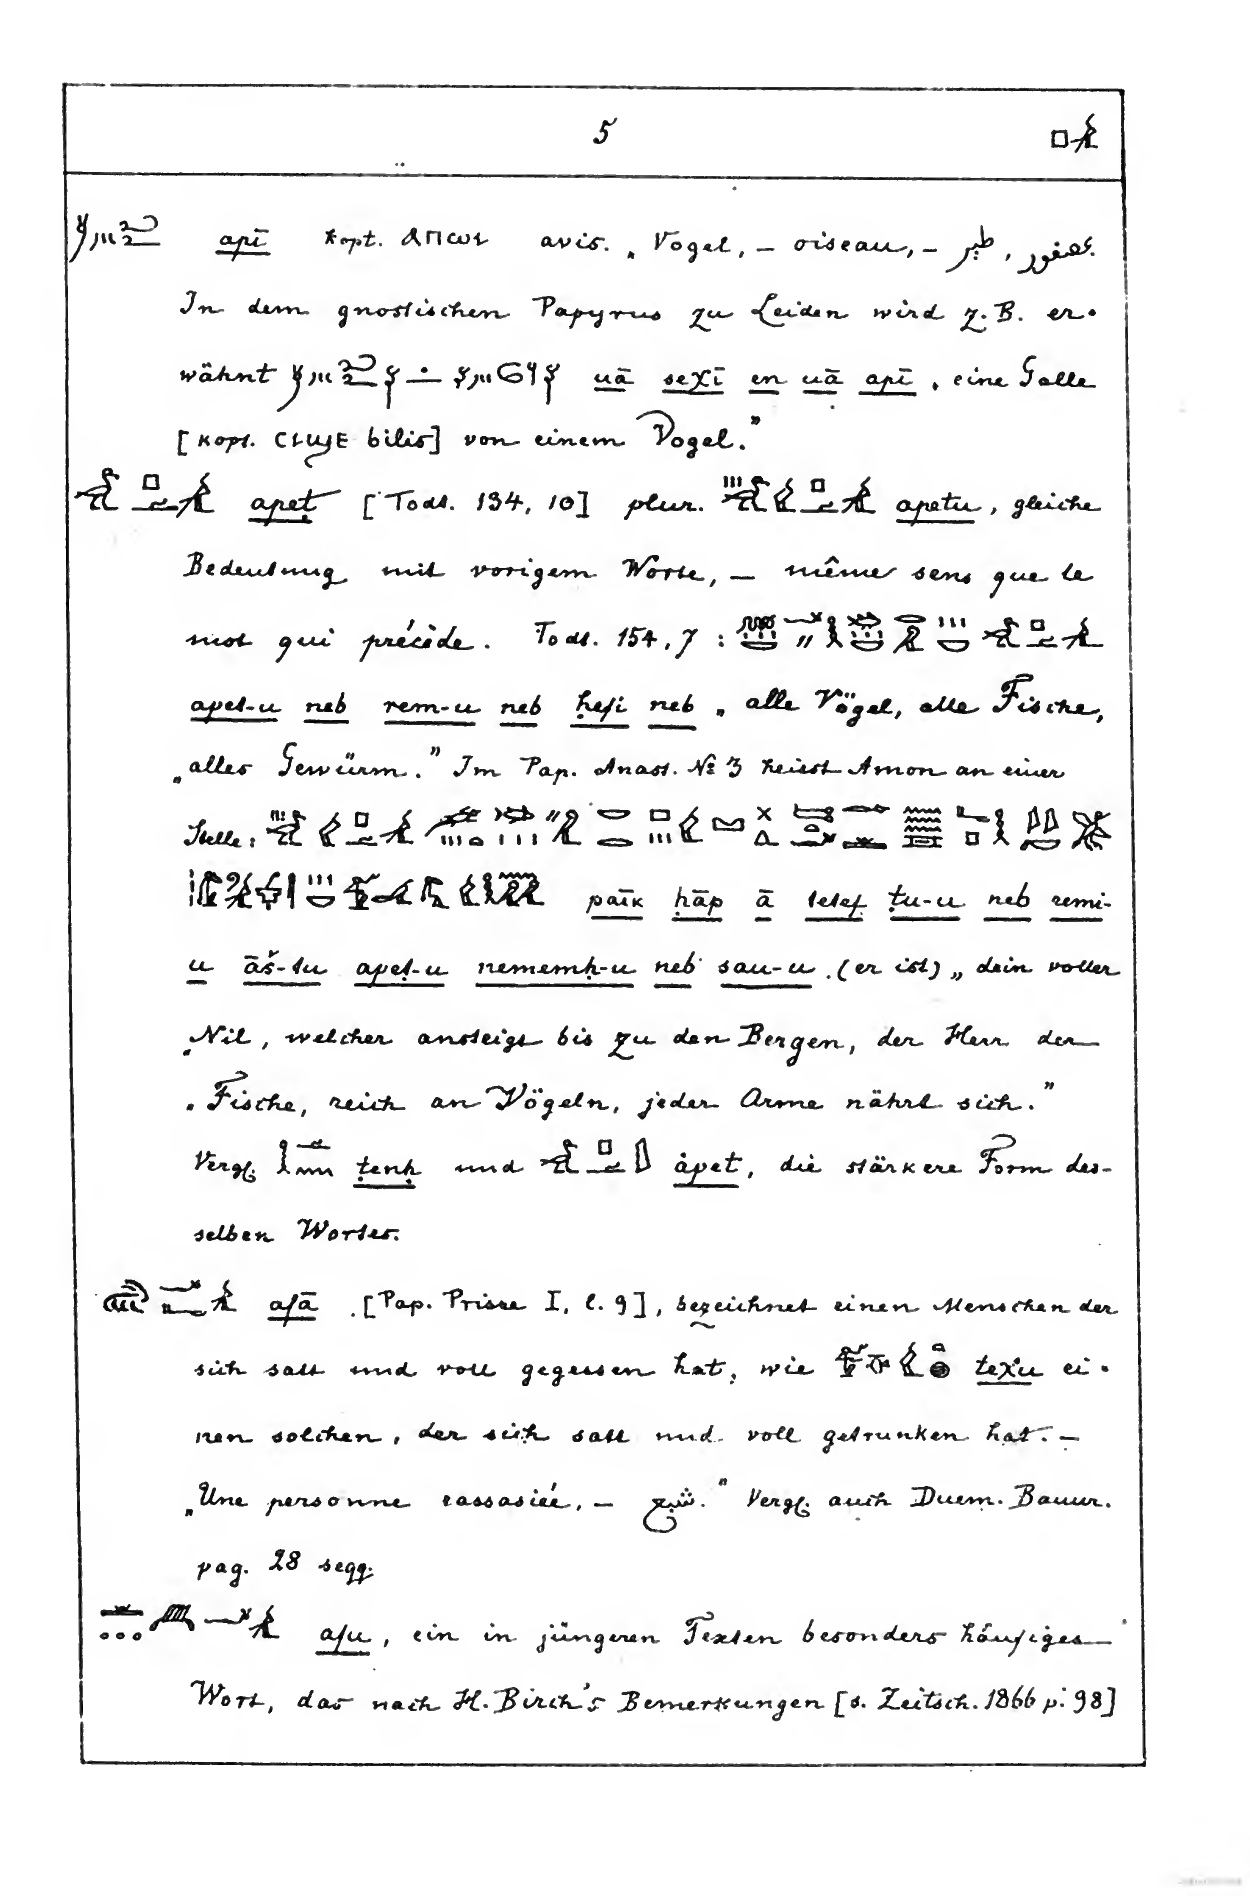 5
apī kopt. ⲁⲡⲱⲓ avis. „Vogel, — oiseau, — طير, عصفور.
In dem gnostischen Papyrus zu Leiden wird z. B. er-
wähnt uā seχī en uā apī, eine Galle
[kopt. ⲥⲓϣⲉ bilis] von einem Vogel.”
apeṭ [Todt. 134, 10] plur. apetu, gleiche
Bedeutung mit vorigem Worte, — même sens que le
mot qui précède. Todt. 154, 7 :
apet-u neb rem-u neb ḥefi neb „alle Vögel, alle Fische,
„alles Gewürm.” Im Pap. Anast. № 3 heisst Amon an einer
Stelle:
paīk ḥāp ā tetef ṭu-u neb remi-
u āš-tu apeṭ-u nememḥ-u neb sau-u. (er ist) „dein voller
„Nil, welcher ansteigt bis zu den Bergen, der Herr der
„Fische, reich an Vögeln, jeder Arme nährt sich.”
Vergl. ṭenḥ und ȧpet, die stärkere Form des-
selben Wortes.
afā [Pap. Prisse I, l. 9], bezeichnet einen Menschen der
sich satt und voll gegessen hat, wie teχu ei-
nen solchen, der sich satt und voll getrunken hat. —
„Une personne rassasiée, — شبع.” Vergl. auch Duem. Bauur.
pag. 28 seqq.
afu, ein in jüngeren Texten besonders häufiges
Wort, das nach H. Birch's Bemerkungen [s. Zeitsch. 1866 p. 98]